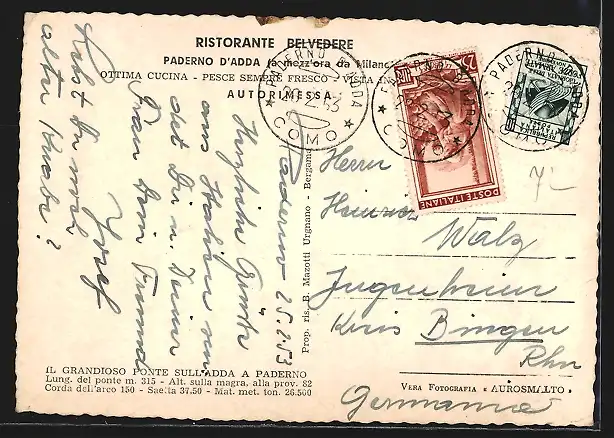 RISTORANTE BELVEDERE
PADERNO D'ADDA (a mezz'ora da Milano
OTTIMA CUCINA - PESCE SEMPRE FRESCO - VISTA
AUTORIMESSA
Paderno 25.2.53
Herzliche Grüße
aus Italien
Dir u. Deiner
Frau Dein Freund
Josef
Lebst Du noch
alter Knabe?
IL GRANDIOSO PONTE SULL'ADDA A PADERNO
Lung. del ponte m. 315 - Alt. sulla magra. alla prov. 82
Corda dell'arco 150 - Saetta 37.50 - Mat. met. ton. 26.500
Prop. ris. B. Mazotti Urgnano - Bergamo
PADERNO D'ADDA
COMO
POSTE ITALIANE
PADERNO D'ADDA
COMO
PADERNO D'ADDA
COMO
Herrn
Heinrich
Walz
Jugenheim
Kreis Bingen
Rhn
Germania
VERA FOTOGRAFIA « AUROSMALTO »